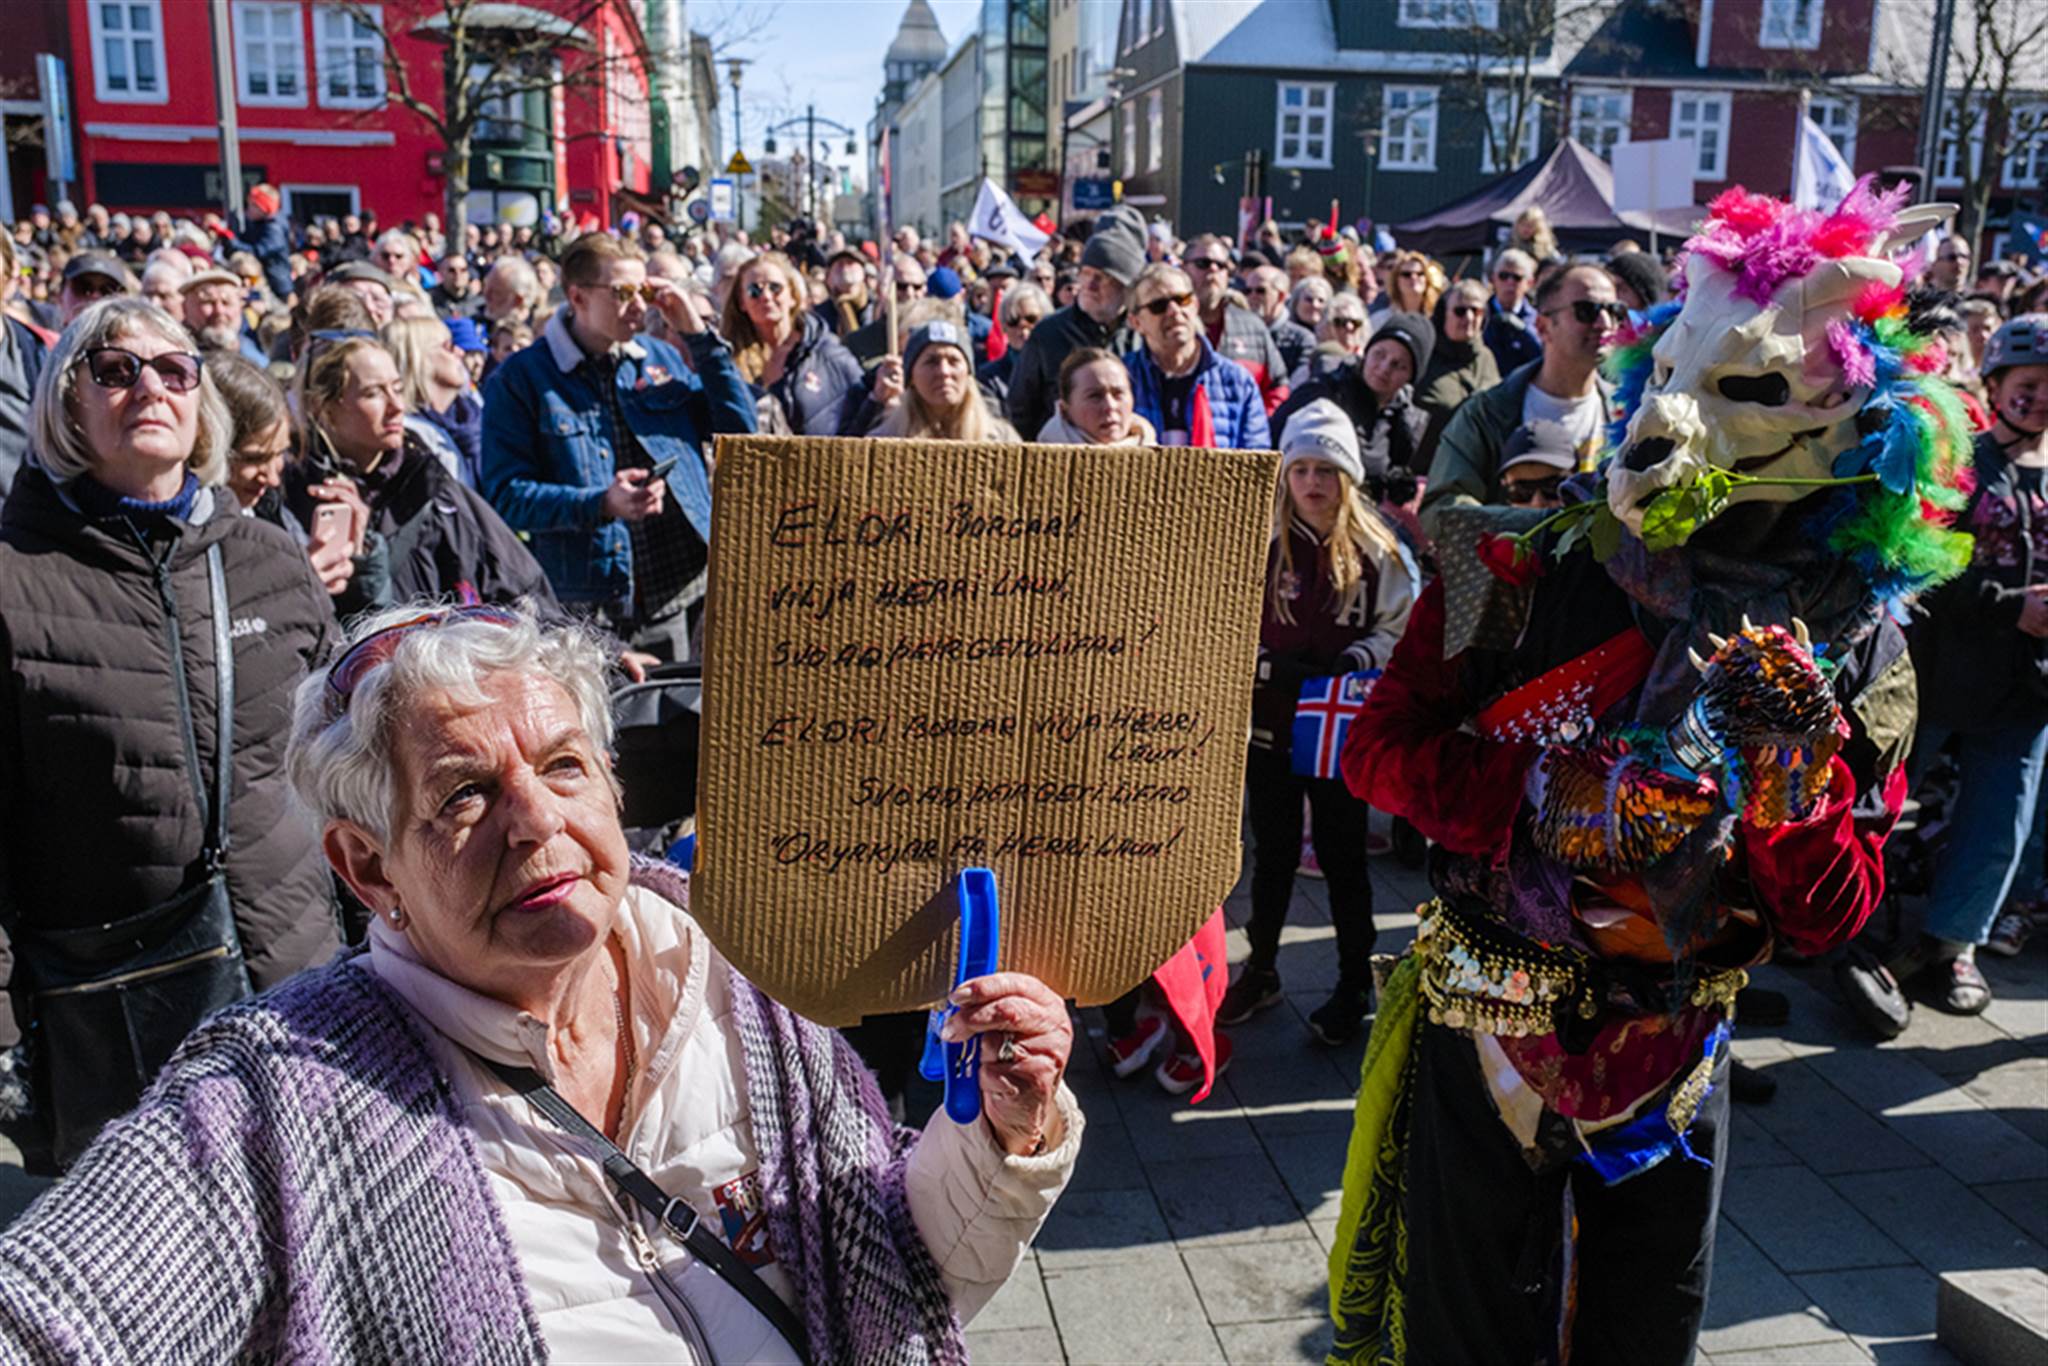 ELDRi BORGAR!
VILJA HÆRRI LAUN,
SVO AÐ ÞEIR GETU LIFAÐ!
ELDRI BORGAR VILJA HÆRRI
LAUN!
SVO AÐ ÞEIR GETI LIFAÐ
"ÖRYRKJAR FÁ HÆRRI LAUN!
A